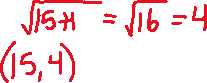 √(15+1) = √16 = 4
(15, 4)